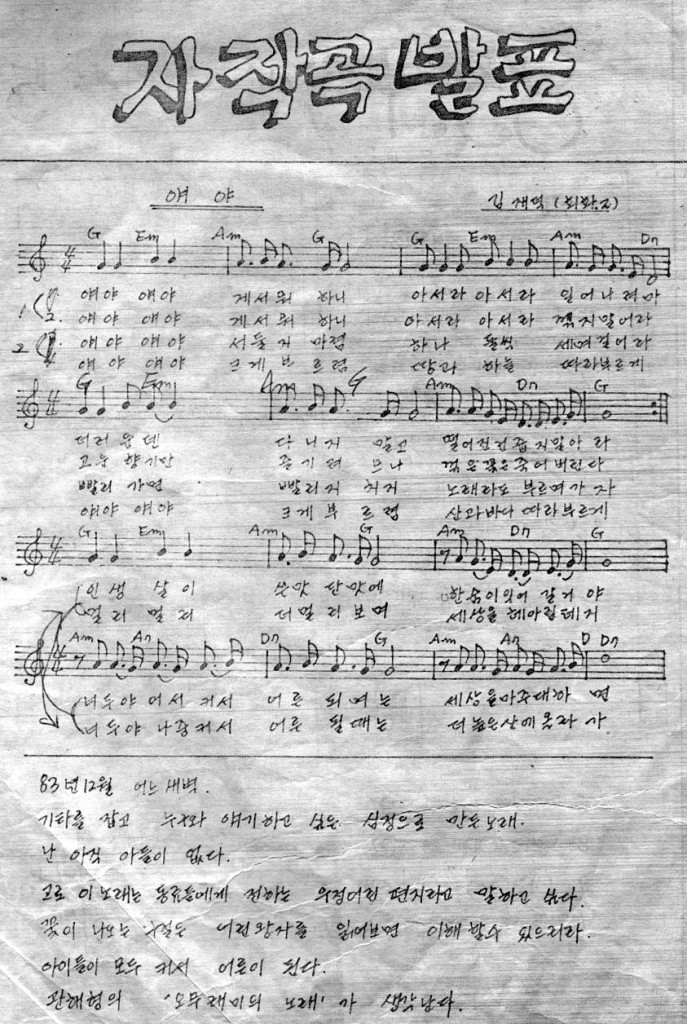 자작곡 발표
얘야
김재덕 (회화2)
G Em Am G G Em Am D7
1 얘야 얘야 게서뭐 하니 아서라 아서라 일어나려마
2. 얘야 얘야 게서뭐 하니 아서라 아서라 꺾지말어라
2 얘야 얘야 서둘지 마렴 하나 둘씩 세며걸어라
얘야 얘야 크게부르렴 땅과 하늘 따라부르게
G Em Am G Am D7 G
더러운덴 다니지 말고 떨어진건줍지말아라
고운 향기만 즐기려므나 꺾은꽃은죽어버린다
빨리 가면 빨리지치지 노래라도 부르며가자
얘야 얘야 크게부르렴 산과바다 따라부르게
G Em Am G Am D7 G
인생살이 쓴맛 단맛에 한숨이있어 길거야
멀리 멀리 더멀리보며 세상을 헤아릴테지
Am Am D7 G Am Am D D7
너두야 어서 커서 어른 되며는 세상을마주대하면
너두야 나중커서 어른 될때는 더높은산에올라가
83년12월 어느새벽.
기타를 잡고 누구와 얘기하고 싶은 심정으로 만든노래.
난 아직 아들이 없다.
고로 이 노래는 동료들에게 전하는 우정어린 편지라고 말하고 싶다.
꽃이 나오는 구절은 어린왕자를 읽어보면 이해할수 있으리라.
아이들이 모두 커서 어른이 된다.
관해형의 '오두래미의 노래'가 생각난다.